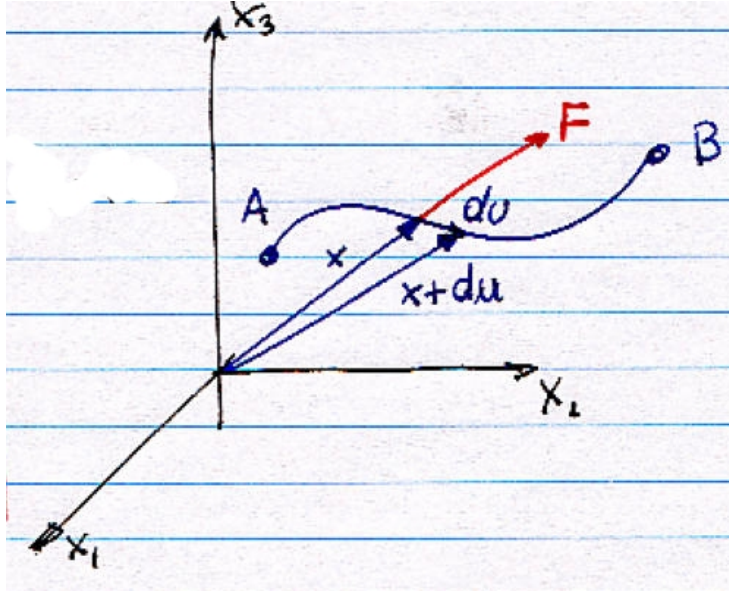 X3
F
B
A
du
x
x+du
X2
X1